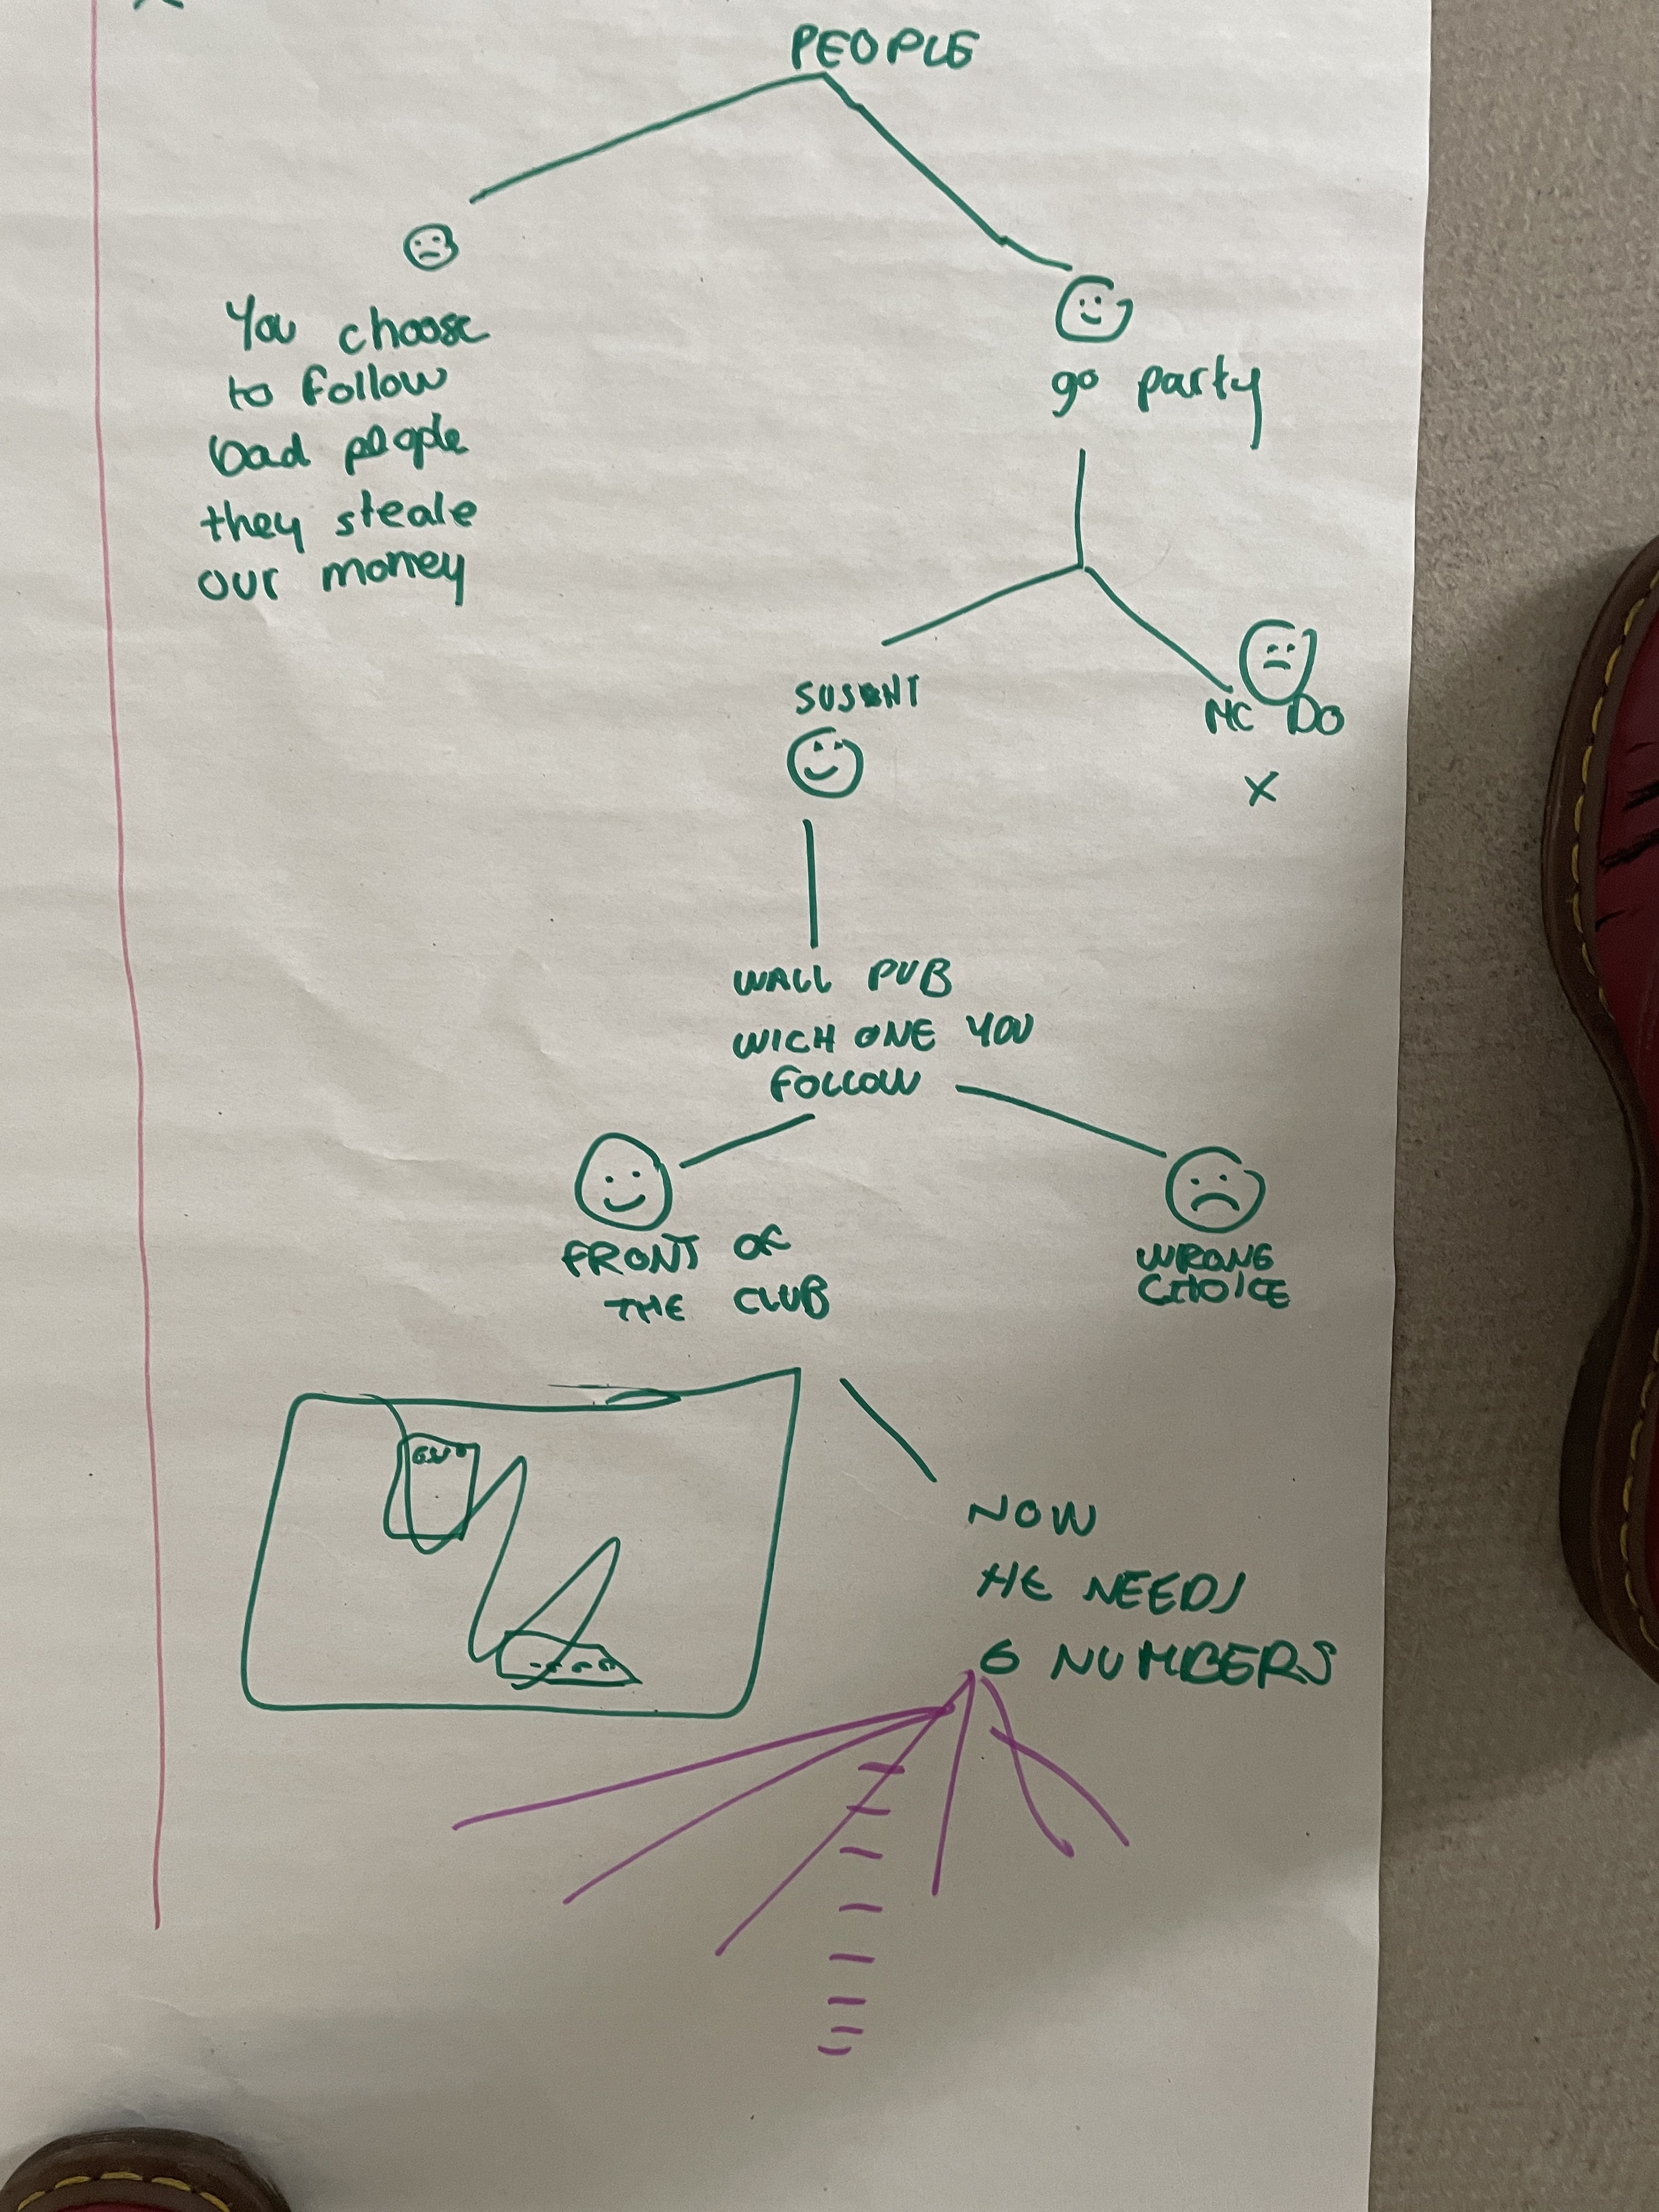 PEOPLE
You choose
to follow
bad people
they steale
our money
go party
MC DO
X
WALL PUB
WICH ONE YOU
FOLLOW
FRONT OF
THE CLUB
WRONG
CHOICE
NOW
HE NEEDS
6 NUMBERS